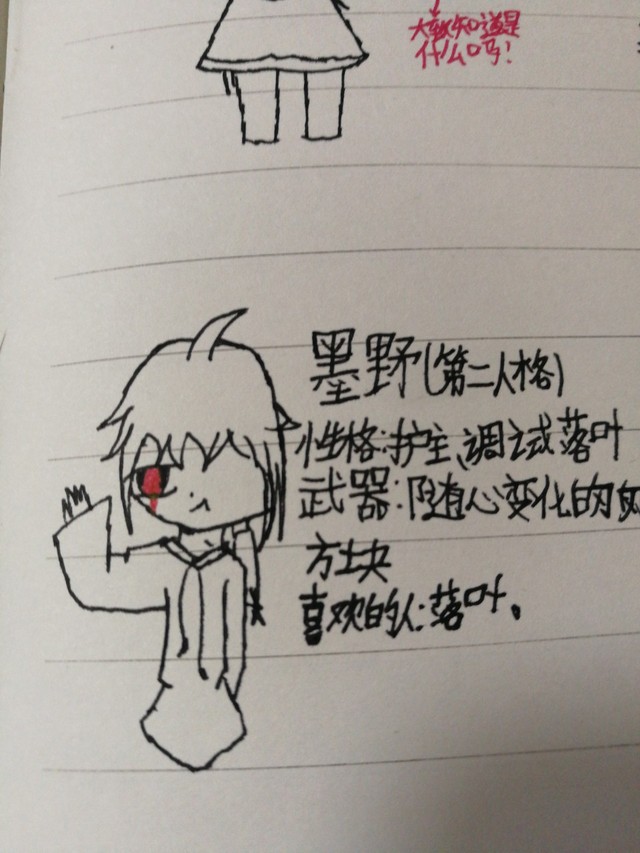 大家知道是
什么吗?
墨野(第二人格)
性格:护主、调试落叶
武器:随心变化的
方块
喜欢的人:落叶。